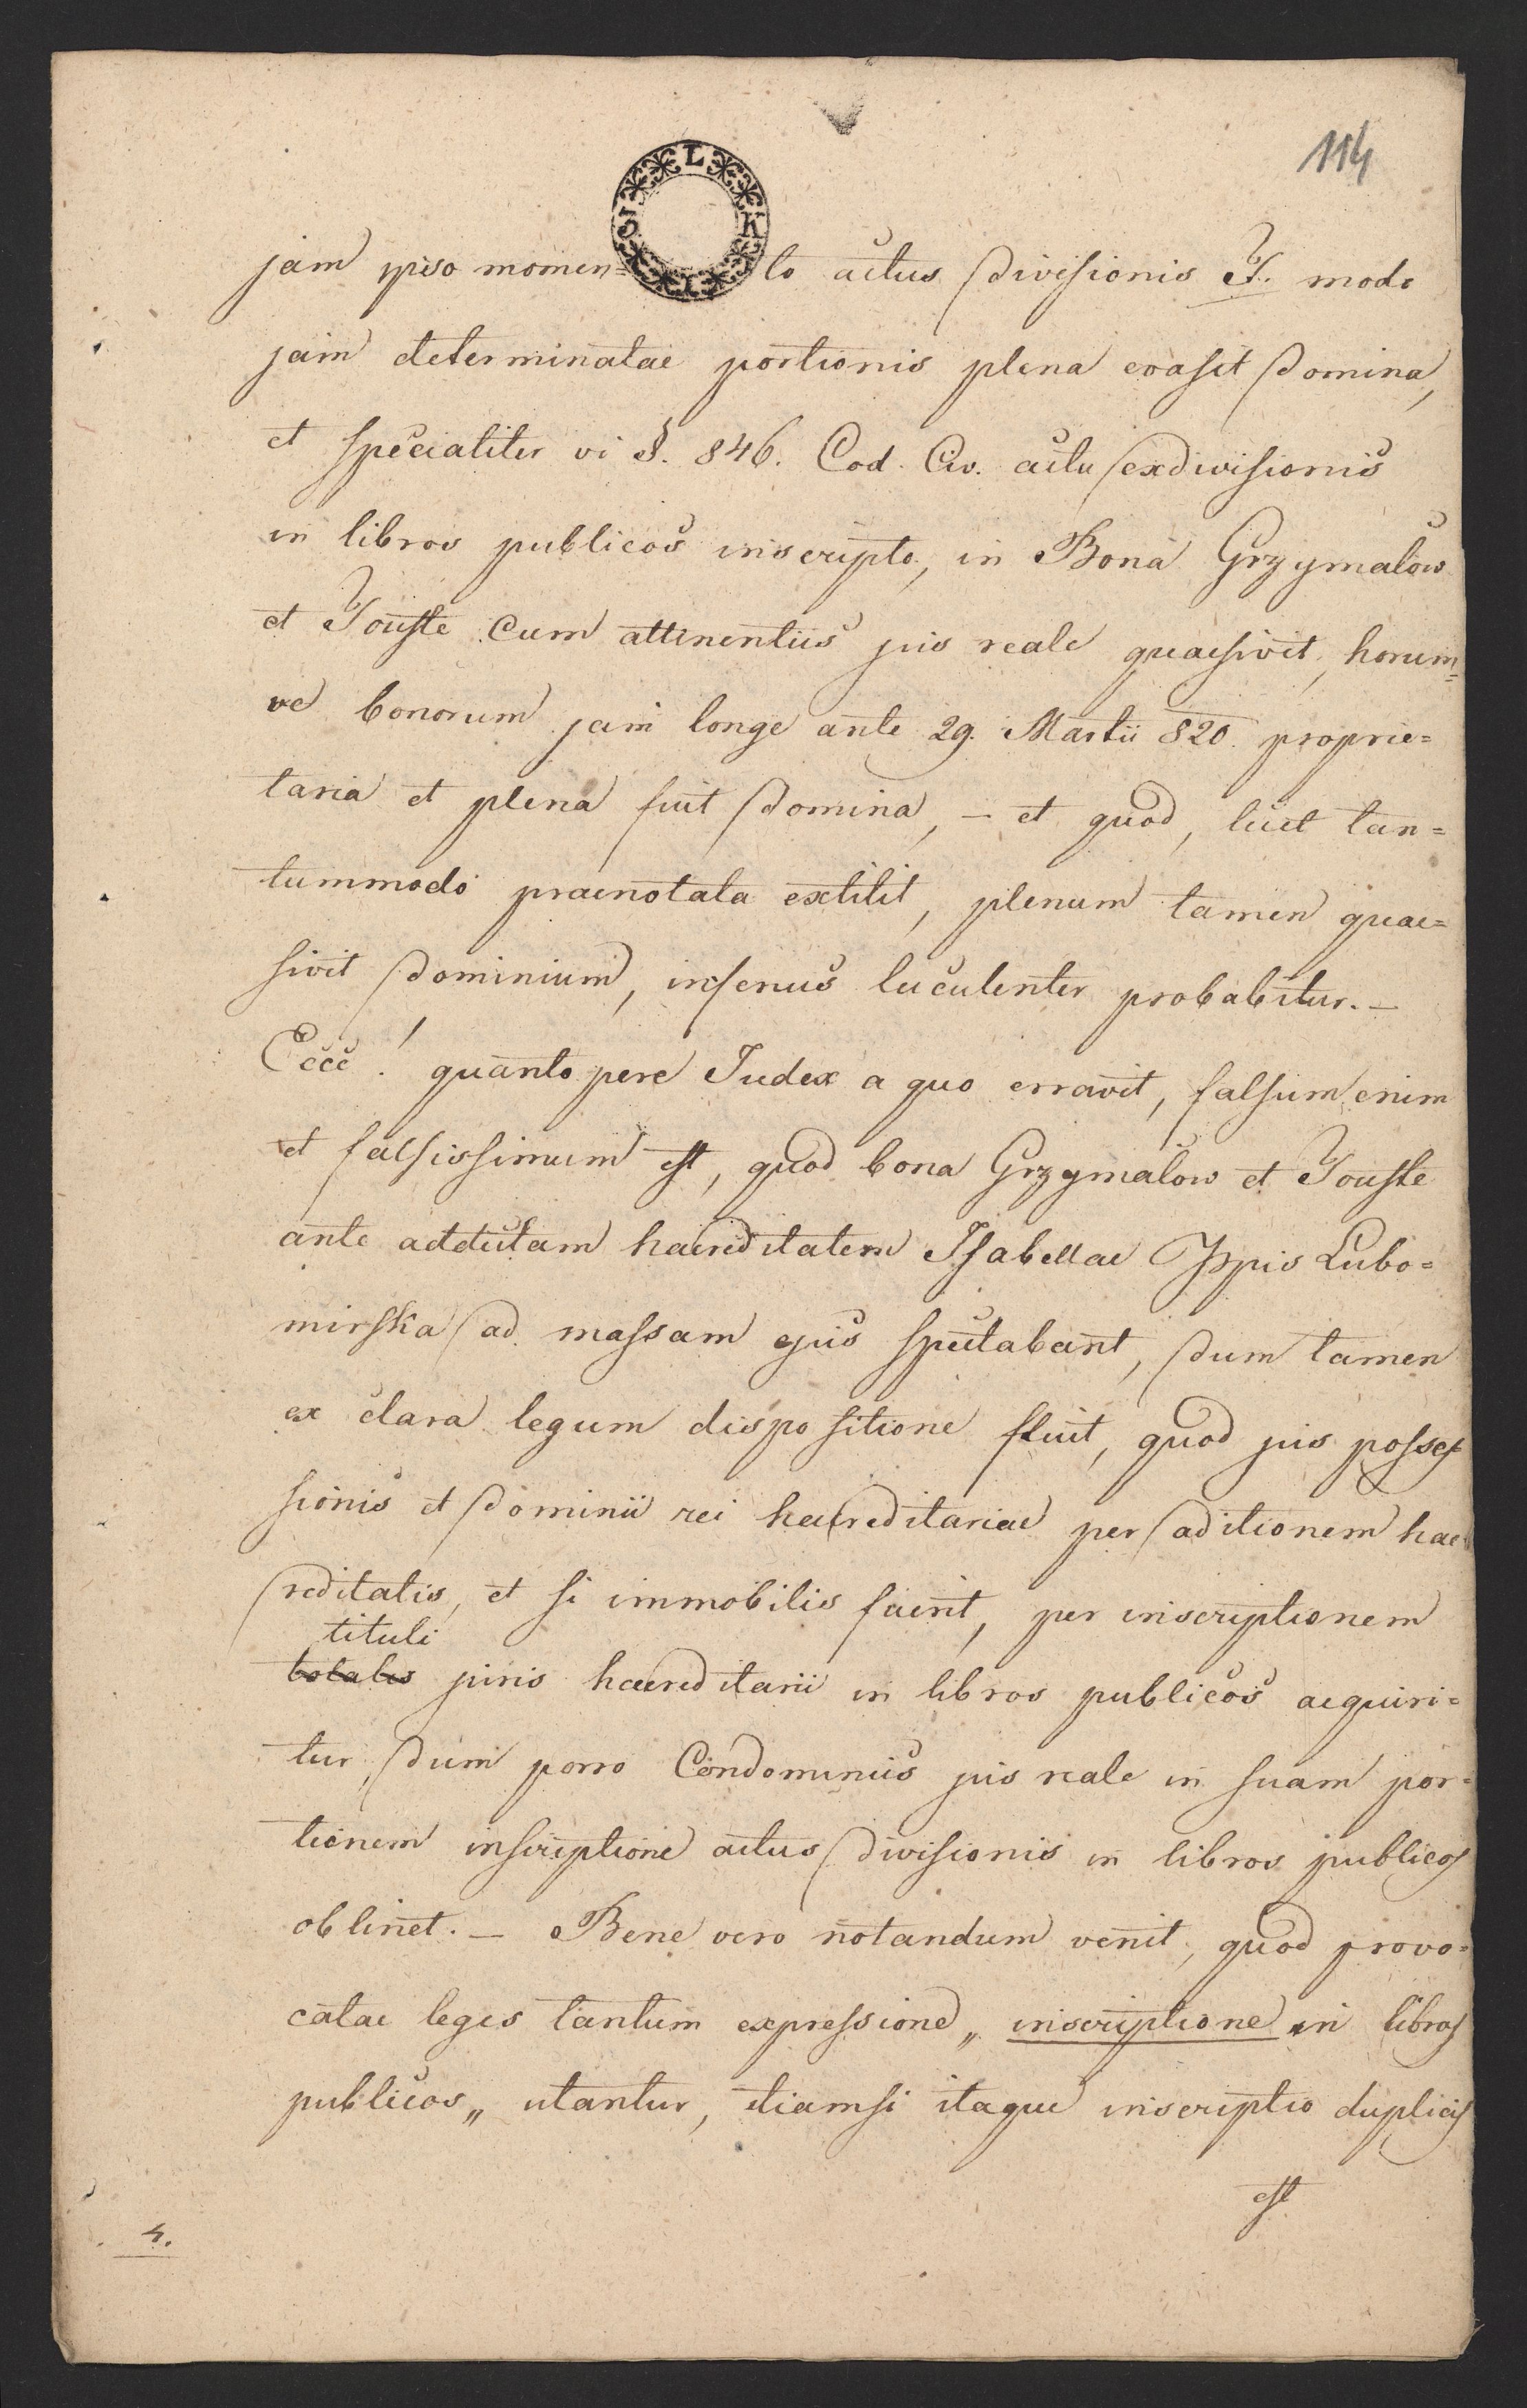 114
3 L K I I
jam ipso momen= to actus divisionis J. modo
jam determinatae portionis plena evasit domina,
et specialiter vi §. 846. Cod. Civ. actu exdivisionis
in libros publicos inscripto, in Bona Grzymalow
et Touste cum attinentiis jus reale quaesivit, horum=
ve bonorum jam longe ante 29. Martii 820. proprie=
taria et plena fuit domina, – et quod, licet tan=
tummodo praenotata extitit, plenum tamen quae=
sivit dominium, inferius luculenter probabitur. –
Ecce! quantopere Judex a quo erravit, falsum enim
et falsissimum est, quod bona Grzymalow et Touste
ante adductam haereditatem Isabellae Ppis Lubo=
mirska ad massam ejus spectabant, dum tamen
ex clara legum dispositione fluit, quod jus posses
sionis et dominii rei haereditariae per aditionem hae
reditatis, et si immobilis fuerit, per inscriptionem
tituli
totales juris haereditarii in libros publicos acquiri=
tur, dum porro Condominus jus reale in suam por=
tionem inscriptione actus divisionis in libros publicos
obtinet. – Bene vero notandum venit, quod provo=
catae leges tantum expressione „ inscriptione in libros
publicos „ utantur, etiamsi itaque inscriptio duplicis
est
4.